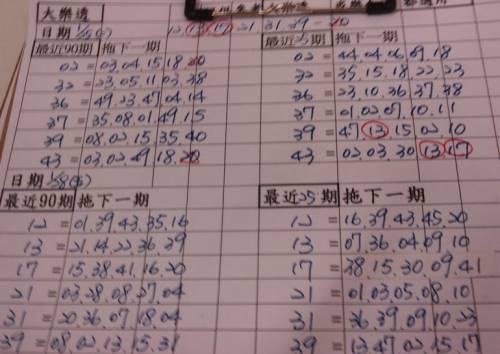 大樂透
日期 12.13.17.21.31.39-20
最近90期 拖下一期 最近25期 拖下一期
02=03.04.15.18.20 02=44.04.06.09.18
32=23.05.11.03.38 32=35.15.18.22.23
36=49.23.47.04.14 36=23.10.36.37.38
37=35.08.01.49.15 37=01.02.07.10.11
39=08.02.15.35.40 39=47.13.15.02.10
43=03.02.49.18.20 43=02.03.30.13.17
日期
最近90期 拖下一期 最近25期 拖下一期
12=01.39.43.35.16 12=16.39.43.45.20
13=21.14.22.36.39 13=07.36.04.09.10
17=15.38.41.16.20 17=38.15.30.09.41
21=03.28.08.27.04 21=01.03.05.08.10
31=20.36.07.18.04 31=36.39.09.10.23
39=08.02.13.15.31 39=13.47.02.15.17